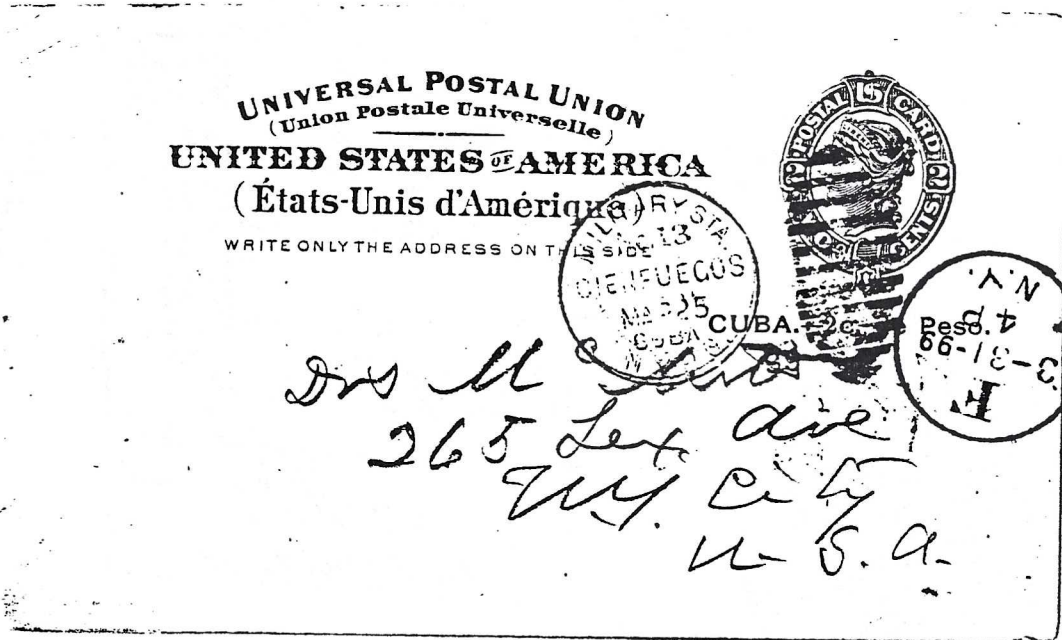 UNIVERSAL POSTAL UNION
(Union Postale Universelle)
UNITED STATES OF AMERICA
(États-Unis d'Amérique)
WRITE ONLY THE ADDRESS ON THIS SIDE
POSTAL CARD
MILITARY STA.
CIENFUEGOS
MAR 25
CUBA
CUBA.—2c. de Peso.
N.Y.
4 P
3-31-99
F
Drs M
265 Lex. Ave
N.Y. City
U-S.A-